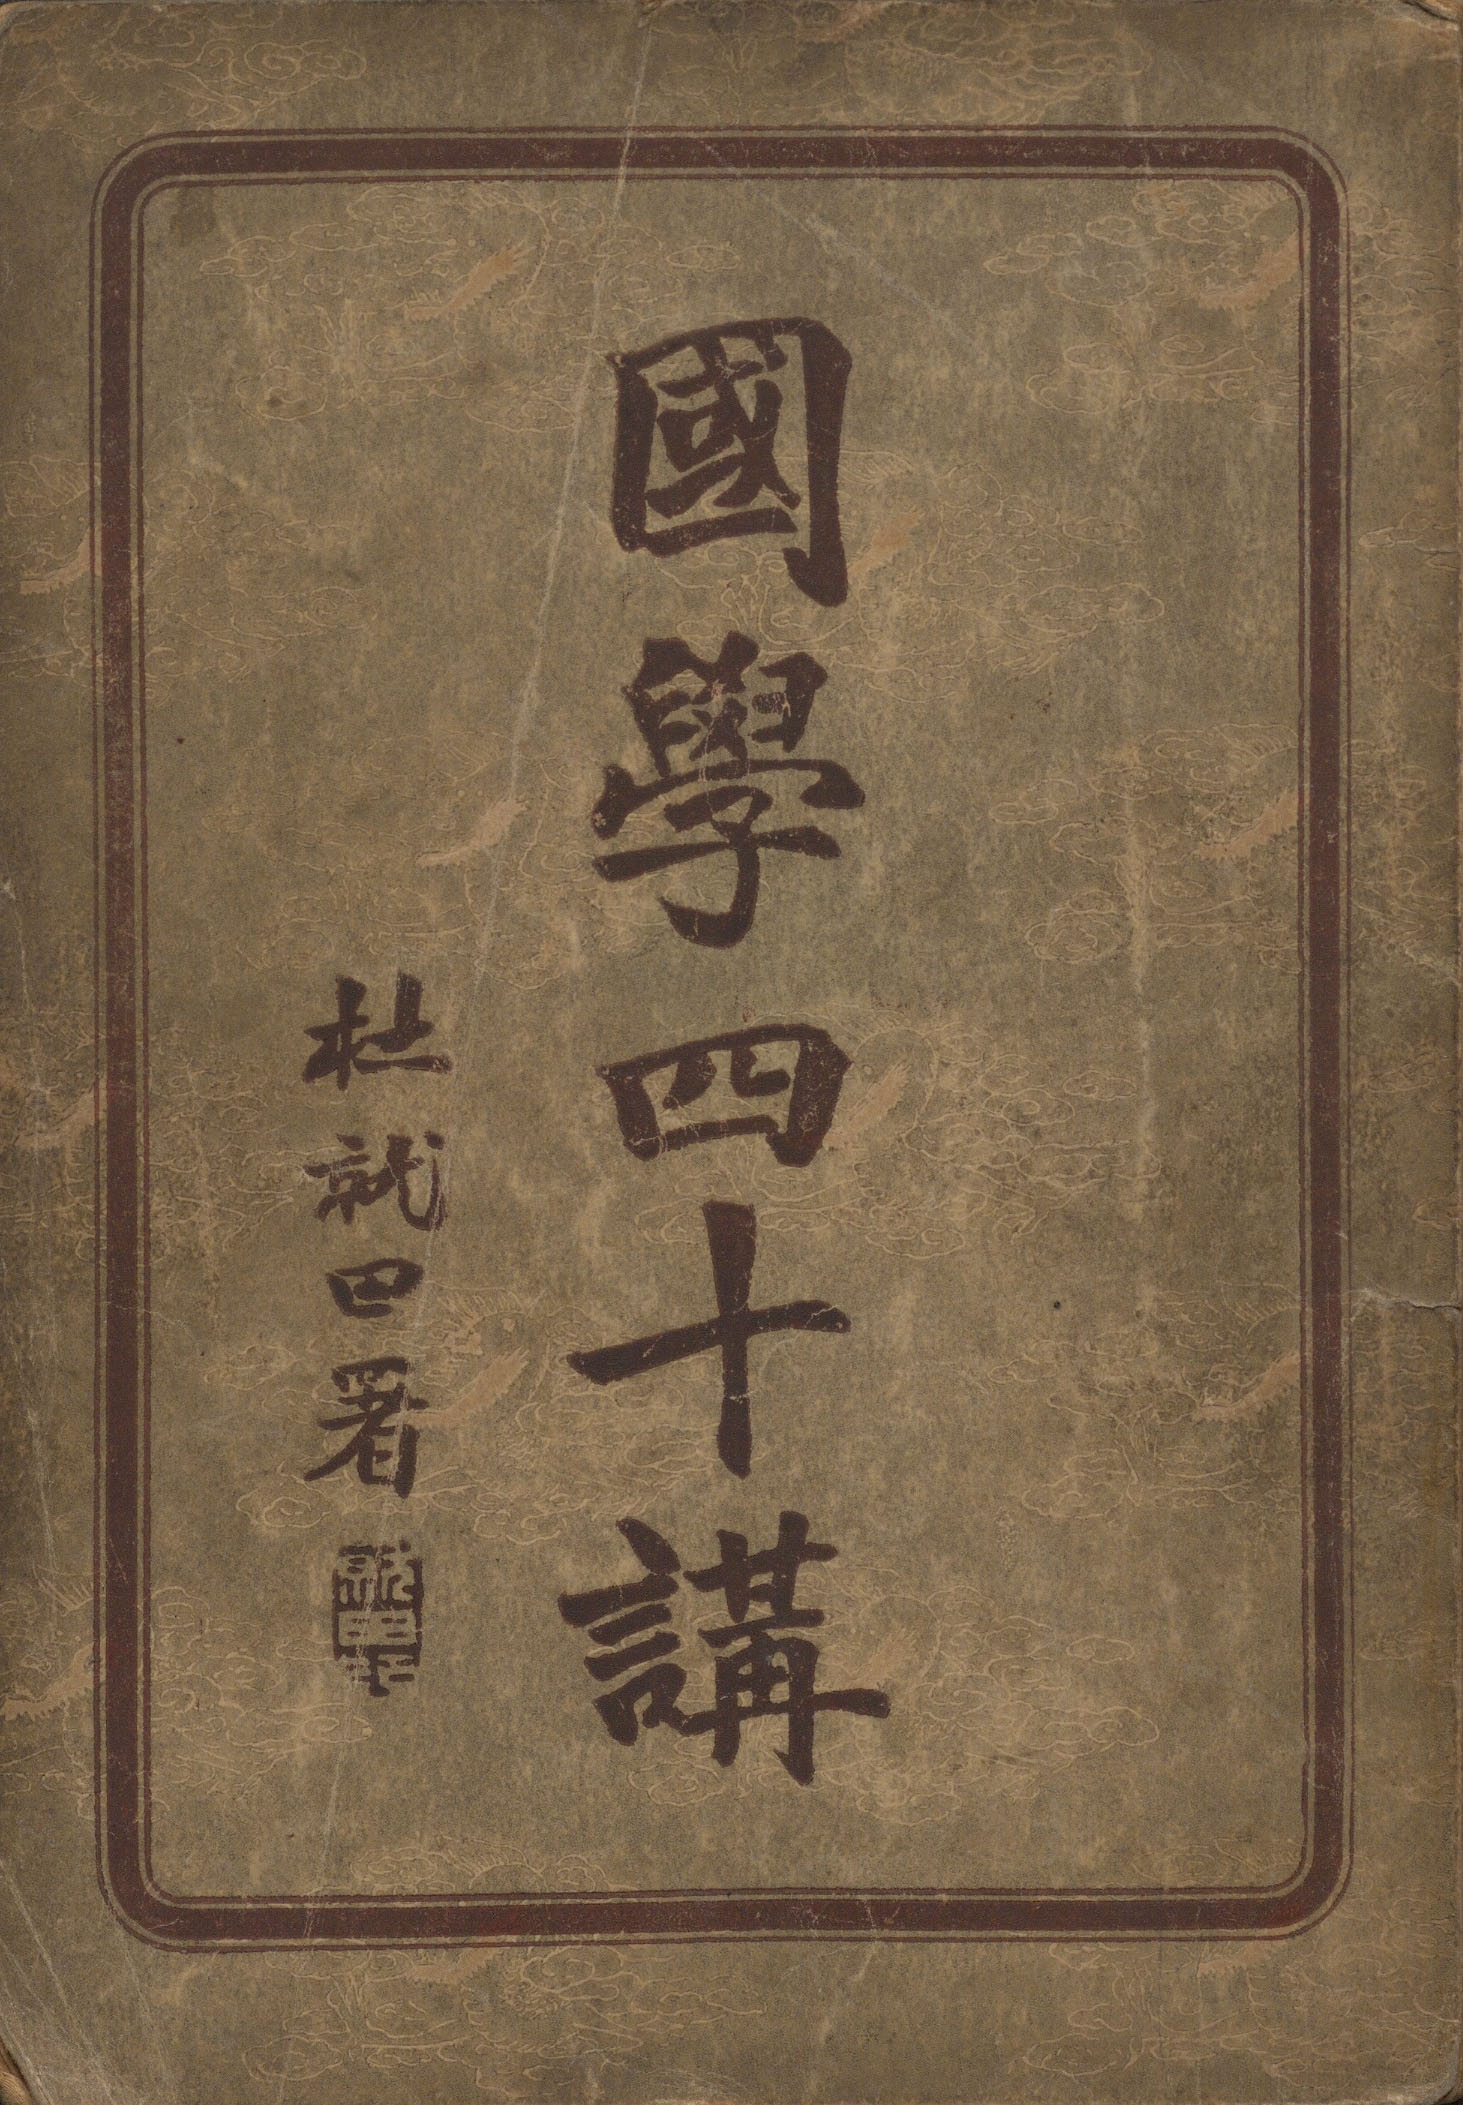 國學四十講
杜就田署